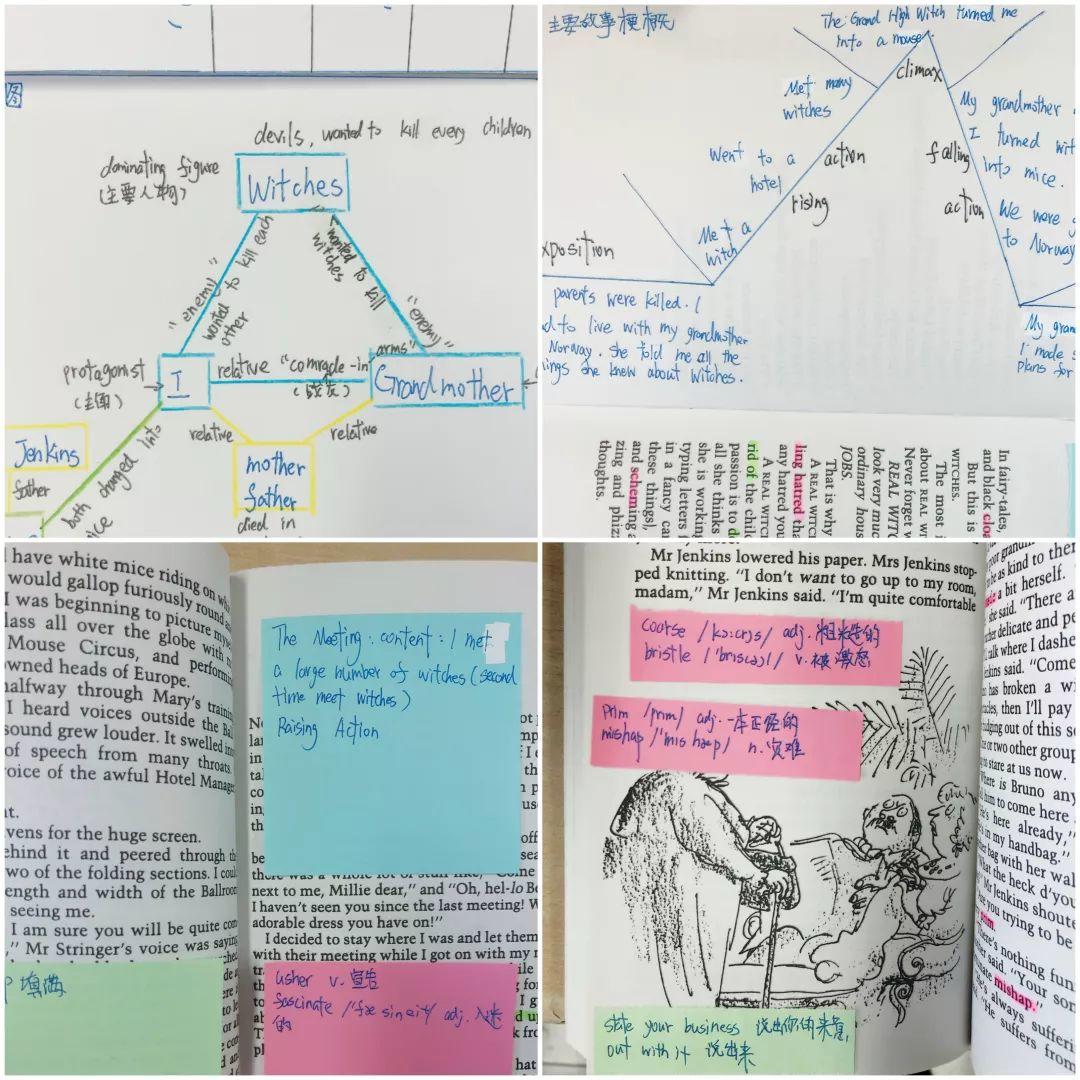 devils, wanted to kill every children
dominating figure
(主要人物)
Witches
"enemy"
wanted to kill each
other
wanted to kill
witches
"enemy"
protagonist
(主角)
I
relative "comrade-in arms"
(战友)
Grandmother
relative
relative
Jenkins
father
mother
father
died in
both changed into
主要故事梗概
The Grand High Witch turned me
into a mouse.
climax
Met many
witches
Went to a
hotel
action
rising
Met a
witch
xposition
falling
action
My grandmother
I turned wit
into mice.
We were
to Norway
parents were killed. I
d to live with my grandmother
Norway. She told me all the
ings she knew about witches.
My gran
I made
plans for
In fairy-tales,
and black cloa
But this is
WITCHES.
The most i
about REAL WI
Never forget w
REAL WITC
look very muc
ordinary hous
JOBS.
That is why
A REAL WITC
ling hatred tha
any hatred you
A REAL WITC
rid of the child
passion is to d
all she thinks
she is working
typing letters f
in a fancy ca
these things),
and scheming a
zing and phizz
thoughts.
I have white mice riding on wh
would gallop furiously round a
I was beginning to picture myse
lass all over the globe with m
Mouse Circus, and performin
owned heads of Europe.
halfway through Mary's traini
I heard voices outside the Bal
sound grew louder. It swelled in
of speech from many throats.
voice of the awful Hotel Manage
nt.
avens for the huge screen.
ehind it and peered through the
two of the folding sections. I coul
ength and width of the Ballroom
seeing me.
I am sure you will be quite com
" Mr Stringer's voice was saying
填满
The Meeting: content: I met
a large number of witches (second
time meet witches)
Raising Action
next to me, Millie dear," and "Oh, hel-lo Be
I haven't seen you since the last meeting! W
adorable dress you have on!"
I decided to stay where I was and let them
with their meeting while I got on with my m
usher v. 宣告
fascinate /'fæsineit/ adj. 入迷
的
Mr Jenkins lowered his paper. Mrs Jenkins stop-
ped knitting. "I don't want to go up to my room,
madam," Mr Jenkins said. "I'm quite comfortable
coarse adj. 粗糙的
bristle v. 被激怒
prim /prim/ adj. 一本正经的
mishap /'mishæp/ n. 灾难
state your business 说出你的来意
out with it 说出来
oor grandm
be as kind to them
a bit herself.
she said. "There a
ther delicate and pe
talk where I dashe
kins said. "Come
ho has broken a wi
acles, then I'll pay
udging out of this se
e or two other group
g to stare at us now.
Where is Bruno any
him to come here
e's here already,"
s in my handbag."
her bag with her wal
What the heck d'you
Mr Jenkins shoute
Are you trying to be
prim.
here's nothing funn
ther said. "Your son
nate mishap."
e's always sufferi
"He suffers from